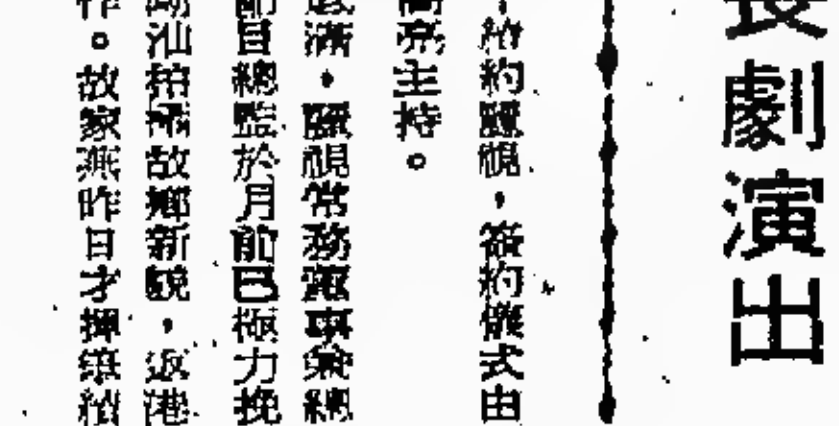 劇演出
約麗視，簽約儀式由
亮主持。
滿，麗視常務董事兼總
節目總監於月前已極力挽
汕拍攝故鄉新貌，返港
作。故家燕昨日才揮筆續